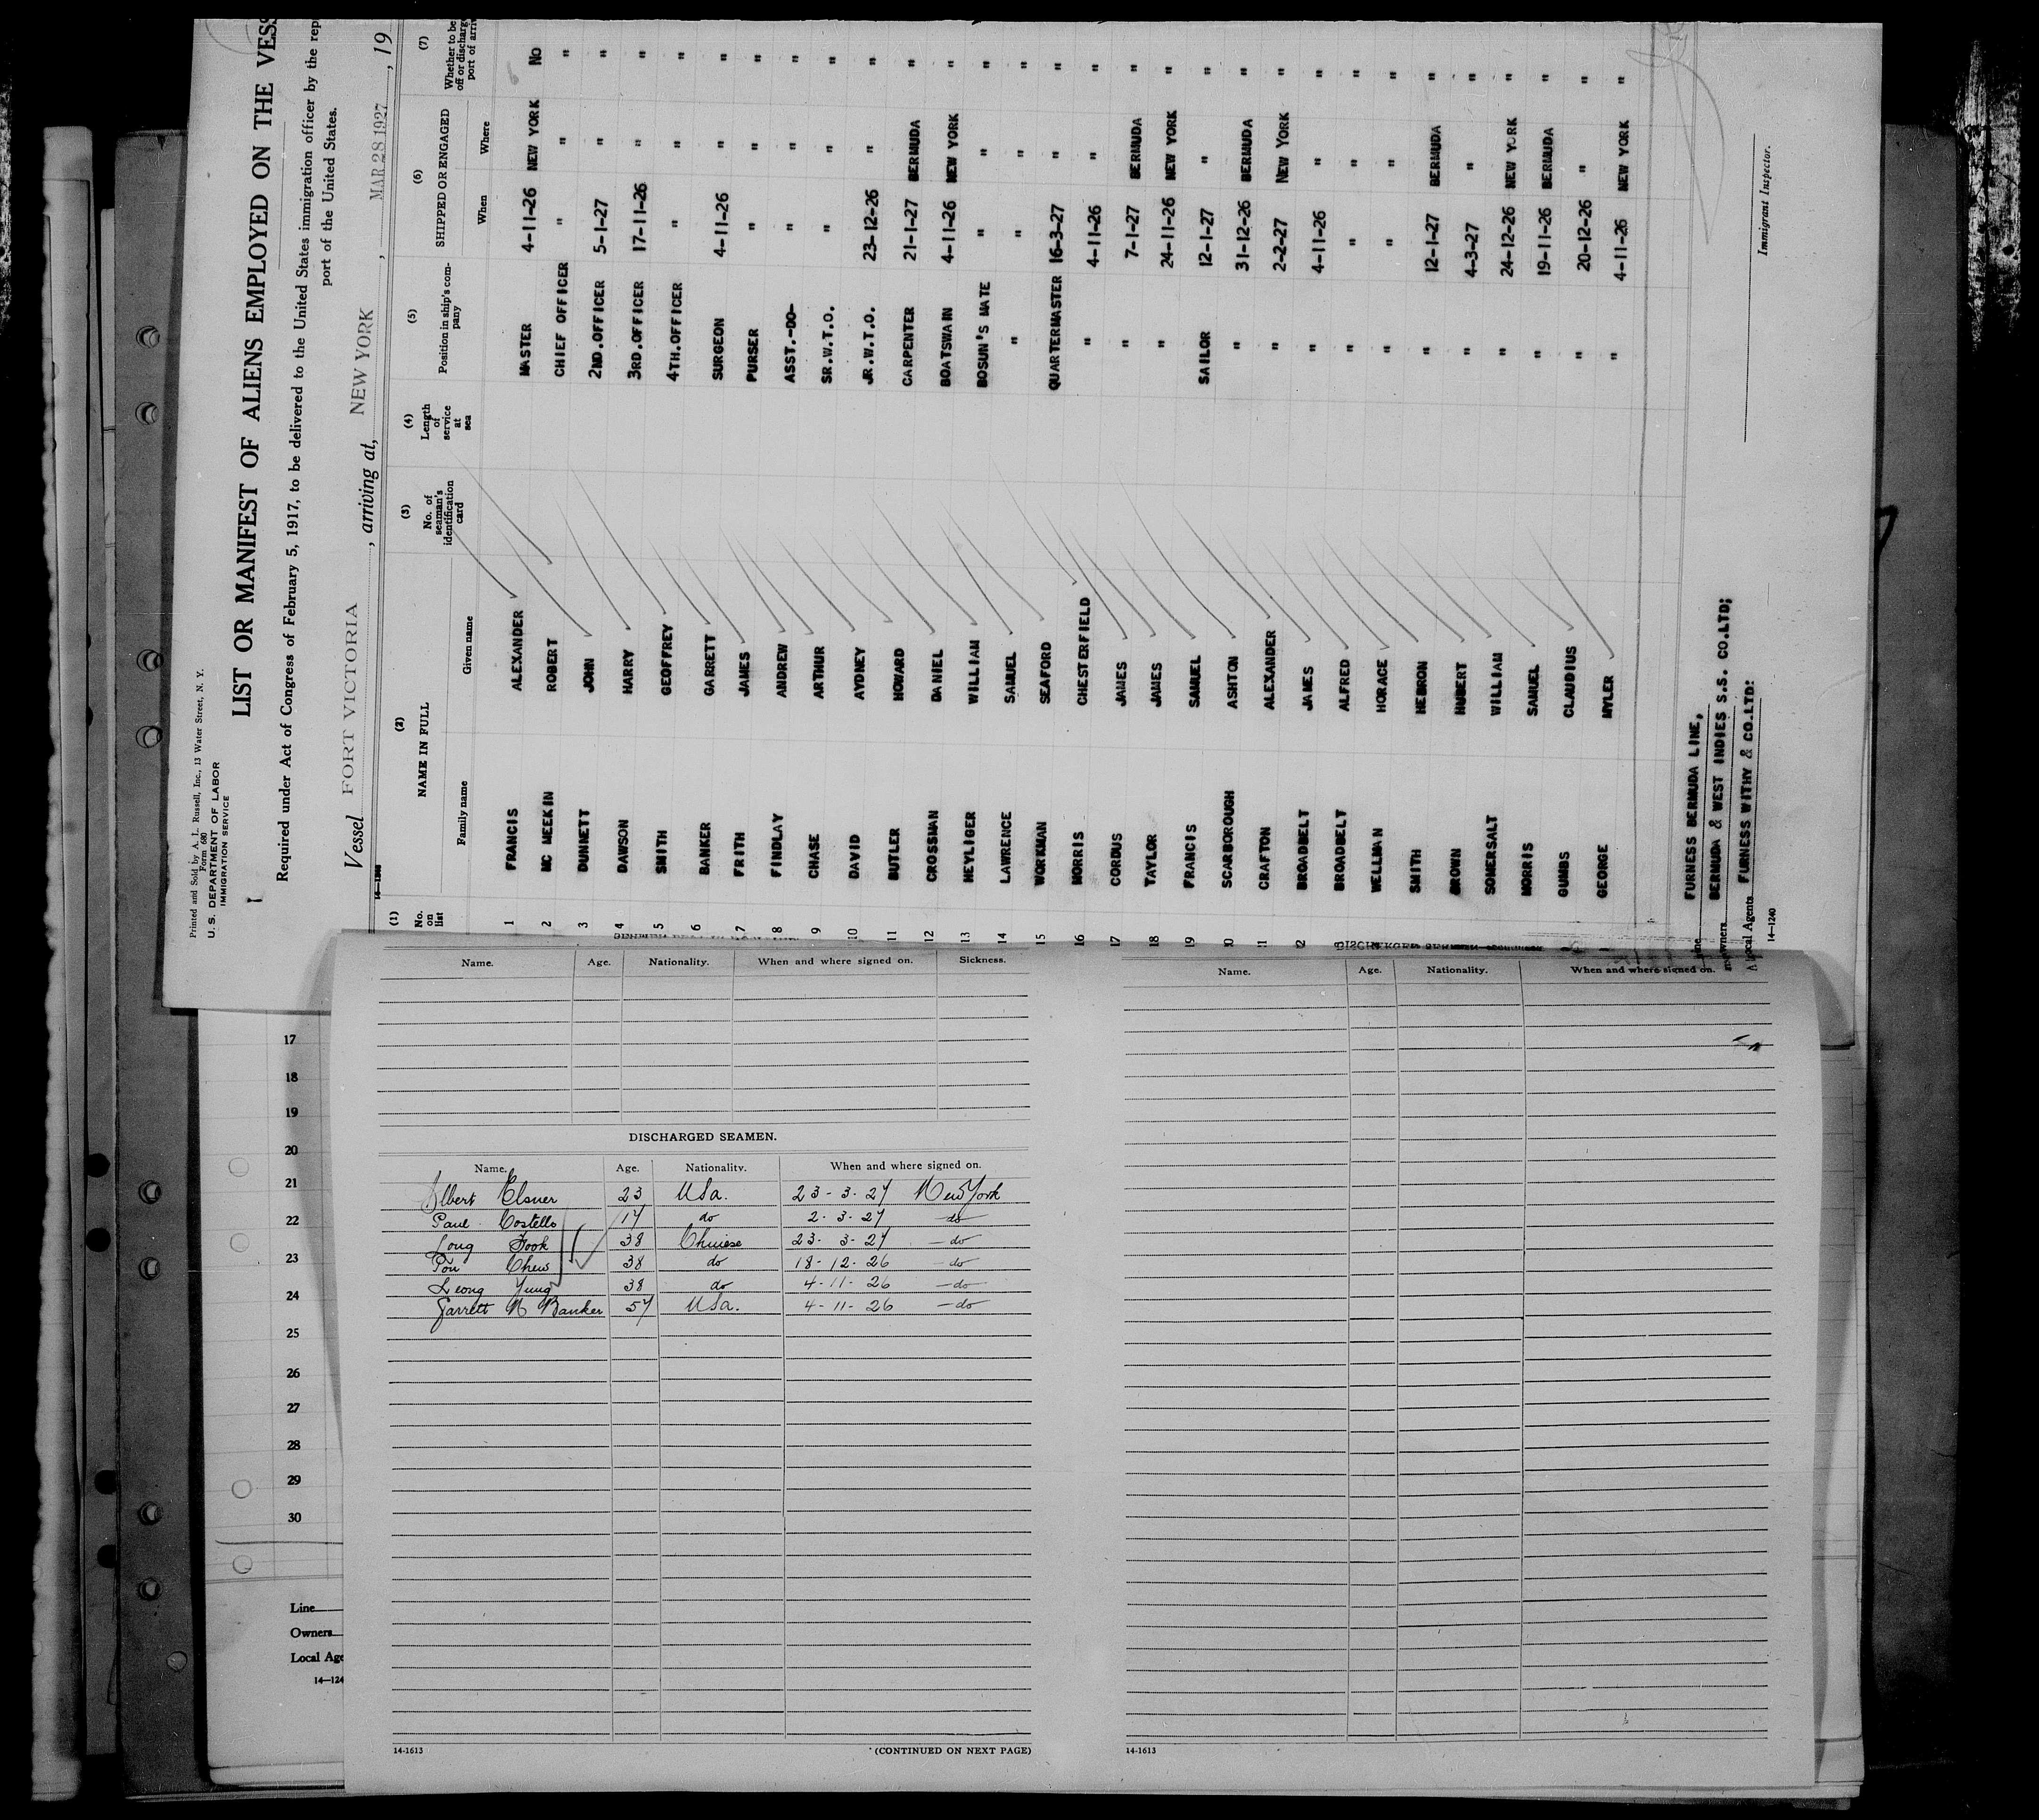 Printed and Sold by A. L. Russell, Inc., 13 Water Street, N. Y.
Form 680
U. S. DEPARTMENT OF LABOR
IMMIGRATION SERVICE
LIST OR MANIFEST OF ALIENS EMPLOYED ON THE VESS
Required under Act of Congress of February 5, 1917, to be delivered to the United States immigration officer by the rep
port of the United States.
Vessel FORT VICTORIA, arriving at, NEW YORK, MAR 28 1927, 19
(1) (2) (3) (4) (5) (6) (7)
No. on list NAME IN FULL No. of seaman's identification card Length of service at sea Position in ship's company SHIPPED OR ENGAGED Whether to be off or discharg port of arri
Family name Given name When Where
1 FRANCIS ALEXANDER MASTER 4-11-26 NEW YORK No
2 MC MEEKIN ROBERT CHIEF OFFICER " " "
3 DUNNETT JOHN 2ND.OFFICER 5-1-27 " "
4 DAWSON HARRY 3RD.OFFICER 17-11-26 " "
5 SMITH GEOFFREY 4TH.OFFICER " " "
6 BANKER GARRETT SURGEON 4-11-26 " "
7 FRITH JAMES PURSER " " "
8 FINDLAY ANDREW ASST.-DO- " " "
9 CHASE ARTHUR SR.W.T.O. " " "
10 DAVID AYDNEY JR.W.T.O. 23-12-26 " "
11 BUTLER HOWARD CARPENTER 21-1-27 BERMUDA "
12 CROSSMAN DANIEL BOATSWAIN 4-11-26 NEW YORK "
13 HEYLIGER WILLIAM BOSUN'S MATE " " "
14 LAWRENCE SAMUEL " " " "
15 WORKMAN SEAFORD QUARTERMASTER 16-3-27 " "
16 MORRIS CHESTERFIELD " 4-11-26 " "
17 CORDUS JAMES " 7-1-27 BERMUDA "
18 TAYLOR JAMES " 24-11-26 NEW YORK "
19 FRANCIS SAMUEL SAILOR 12-1-27 " "
0 SCARBOROUGH ASHTON " 31-12-26 BERMUDA "
1 CRAFTON ALEXANDER " 2-2-27 NEW YORK "
2 BROADBELT JAMES " 4-11-26 " "
BROADBELT ALFRED " " " "
WELLMAN HORACE " " " "
SMITH HEBRON " 12-1-27 BERMUDA "
BROWN HUBERT " 4-3-27 " "
SOMERSALT WILLIAM " 24-12-26 NEW YORK "
MORRIS SAMUEL " 19-11-26 BERMUDA "
GUMBS CLAUDIUS " 20-12-26 " "
GEORGE MYLER " 4-11-26 NEW YORK "
FURNESS BERMUDA LINE,
BERMUDA & WEST INDIES S.S. CO.LTD;
Local Agents FURNESS WITHY & CO.LTD:
14-1240
Immigrant Inspector.
Name. Age. Nationality. When and where signed on. Sickness.
DISCHARGED SEAMEN.
Name. Age. Nationality. When and where signed on.
Albert Elsner 23 USa. 23-3-27 New York
Paul Costello 17 do 2-3-27 do
Long Fook 38 Chinese 23-3-27 do
Pon Chew 38 do 18-12-26 do
Leong Yung 38 do 4-11-26 do
Garrett N Banker 57 USa. 4-11-26 do
14-1613
(CONTINUED ON NEXT PAGE)
Name. Age. Nationality. When and where signed on.
14-1613
17
18
19
20
21
22
23
24
25
26
27
28
29
30
Line
Owners
Local Age
14-124